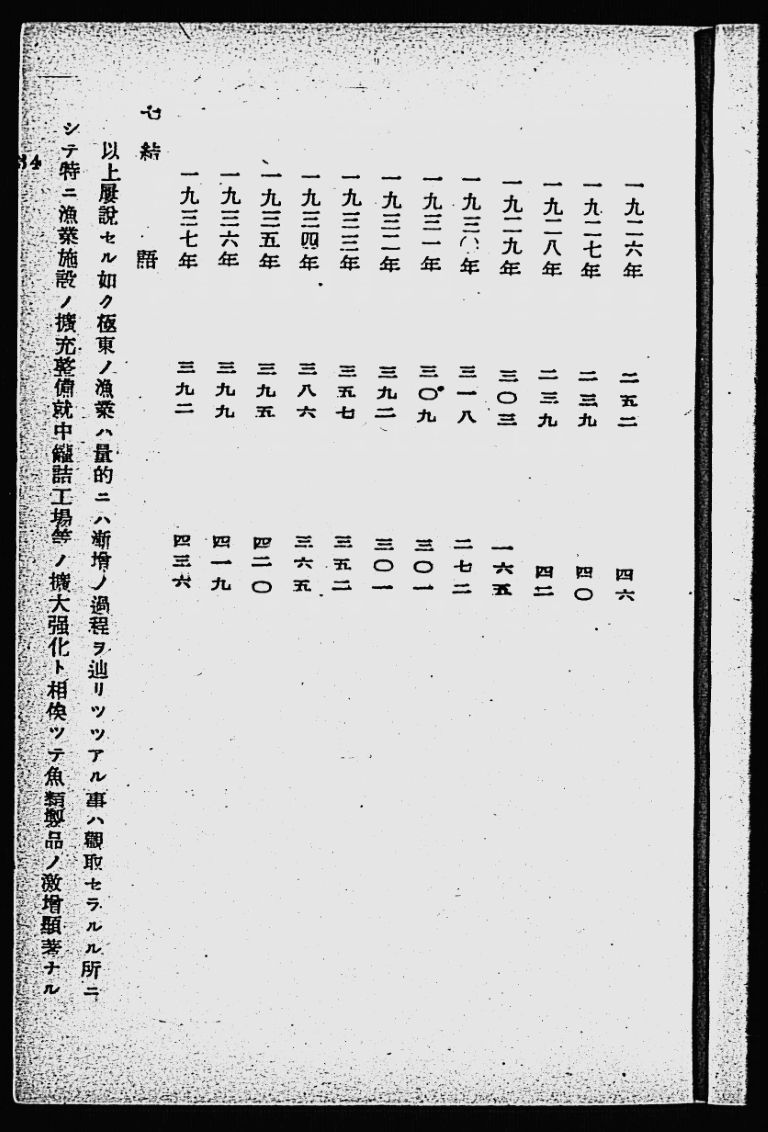 一九二六年 二五二 四六
一九二七年 二三九 四〇
一九二八年 二三九 四二
一九二九年 三〇三 一六五
一九三〇年 三一八 二七二
一九三一年 三〇九 三〇一
一九三二年 三九二 三〇一
一九三三年 三五七 三五二
一九三四年 三八六 三六五
一九三五年 三九五 四二〇
一九三六年 三九九 四一九
一九三七年 三九二 四三六
七 結語
以上屡說セル如ク極東ノ漁業ハ量的ニハ漸增ノ過程ヲ辿リツツアル事ハ觀取セラルル所ニ
シテ特ニ漁業施設ノ擴充整備就中罐詰工場等ノ擴大强化ト相俟ツテ魚類製品ノ激增顯著ナル
34